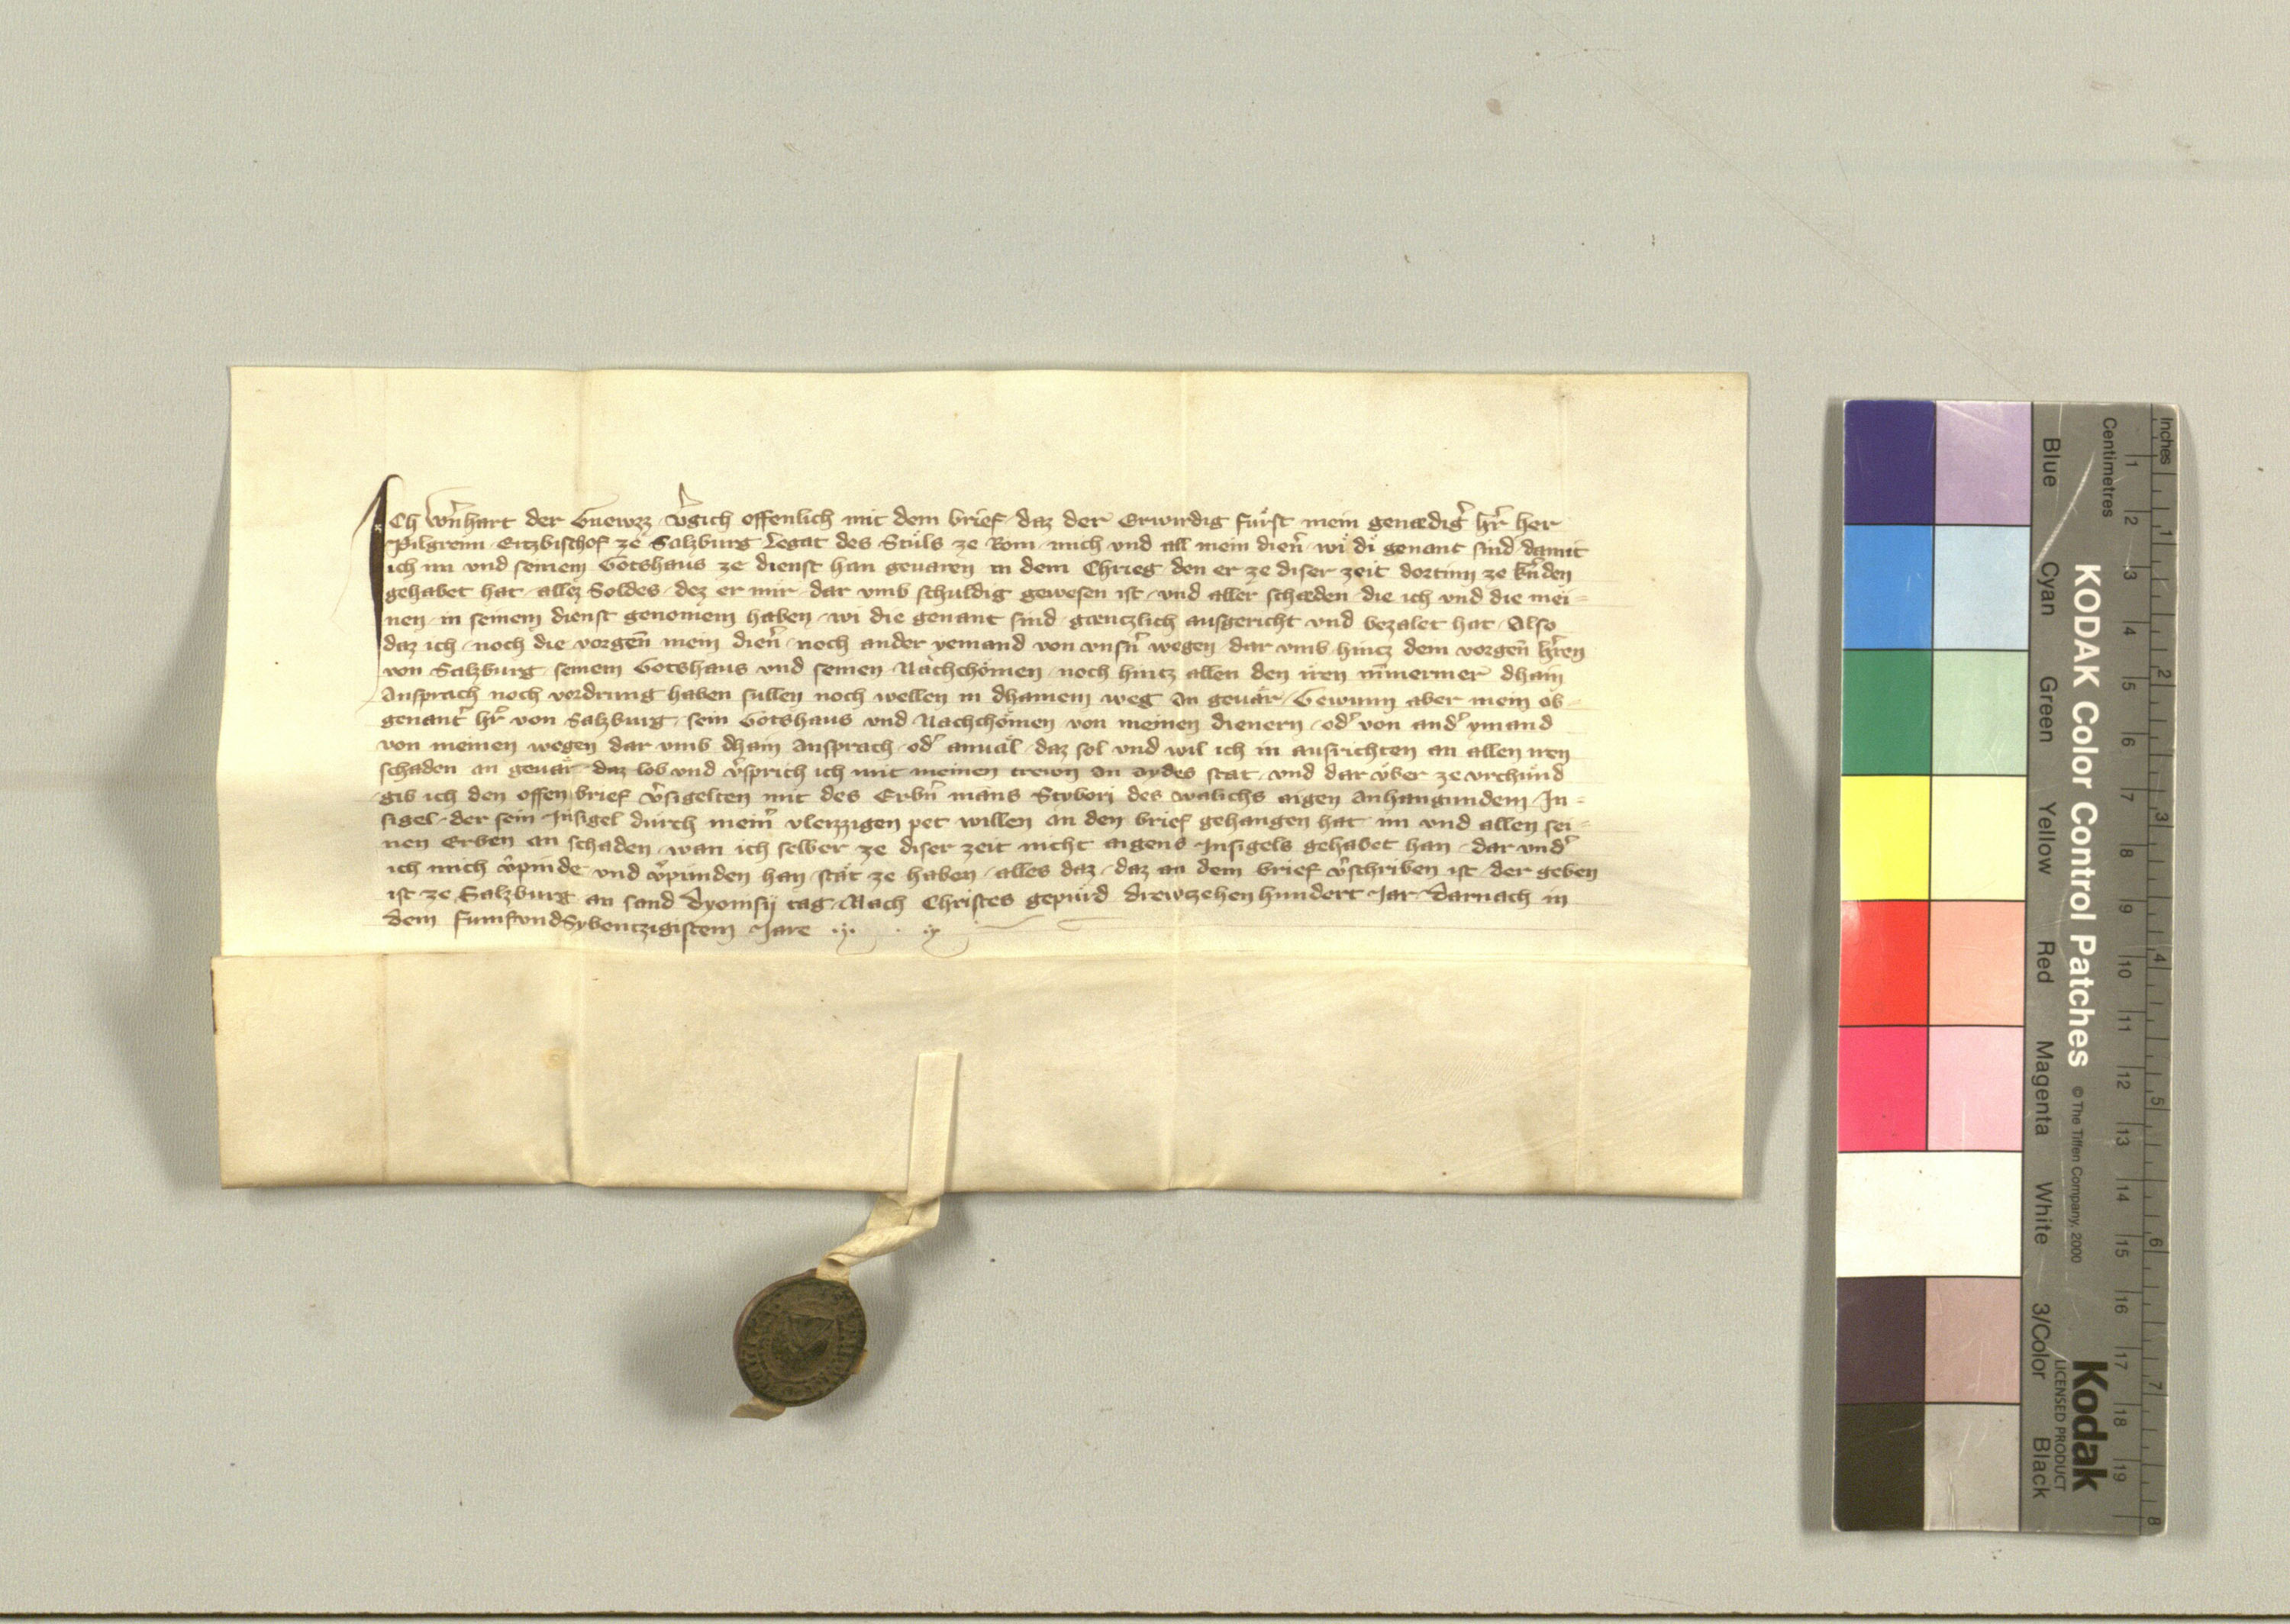 Ich Wernhart der Guewzz vergich offenlich mit dem brief daz der Erwirdig fürst mein genædiger herr her
Pilgreim Ertzbischof ze Salzburg Legat des Stůls ze Rom mich und all mein diener wi di genant sind damit
ich im und seinem Gotshaus ze dienst han gevaren in dem Chrieg den er ze diser zeit dortinn ze
gehabet hat allez Soldes dez er mir dar umb schuldig gewesen ist und aller schæden die ich und die mei=
nen in seinem dienst genomen haben wi die genant sind gæntzlich ausgericht und bezalet hat Also
daz ich noch die vorgen̄ mein dien̄ noch ander yemand von unsn̄ wegen dar umb hintz dem vorgen̄ hr̄en
von Salzburg seinem Gotshaus und seinen Nachchomen noch hintz allen den iren nimmermer dhain
Ansprach noch vordrung haben sullen noch wellen in dhainem weg An gevär Gewunn aber mein ob=
genantr̄ hr̄ von Salzburg sein Gotshaus und Nachchomen von meinen dienern od̄ von and̄ ymand
von meinen wegen dar umb dhain Ansprach od̄ anväl daz sol und wil ich in ausrichten an allen iren
schaden an gevär daz lob und v̄sprich ich mit meinen trewn an aydes stat und dar über ze urchünd
gib ich den offen brief v̄sigelten mit des Erbn̄ mans Stybori des walichs aigen Anhangundem In=
sigel der sein Insigel durch mein̄ vleizzigen pet willen an den brief gehangen hat im und allen sei=
nen Erben an schaden wan ich selber ze diser zeit nicht aigens Insigels gehabet han dar und̄
ich mich v̄pinde und v̄punden han stät ze haben alles daz daz an dem brief v̄schriben ist der geben
ist ze Salzburg an sand Dyonisij tag Nach Christes gepürd drewzehenhundert Jar Darnach in
dem fumfundSybentzigistem Jare
KODAK Color Control Patches © The Tiffen Company, 2000 Kodak LICENSED PRODUCT
Inches 1 2 3 4 5 6 7 8
Centimetres 1 2 3 4 5 6 7 8 9 10 11 12 13 14 15 16 17 18 19
Blue Cyan Green Yellow Red Magenta White 3/Color Black